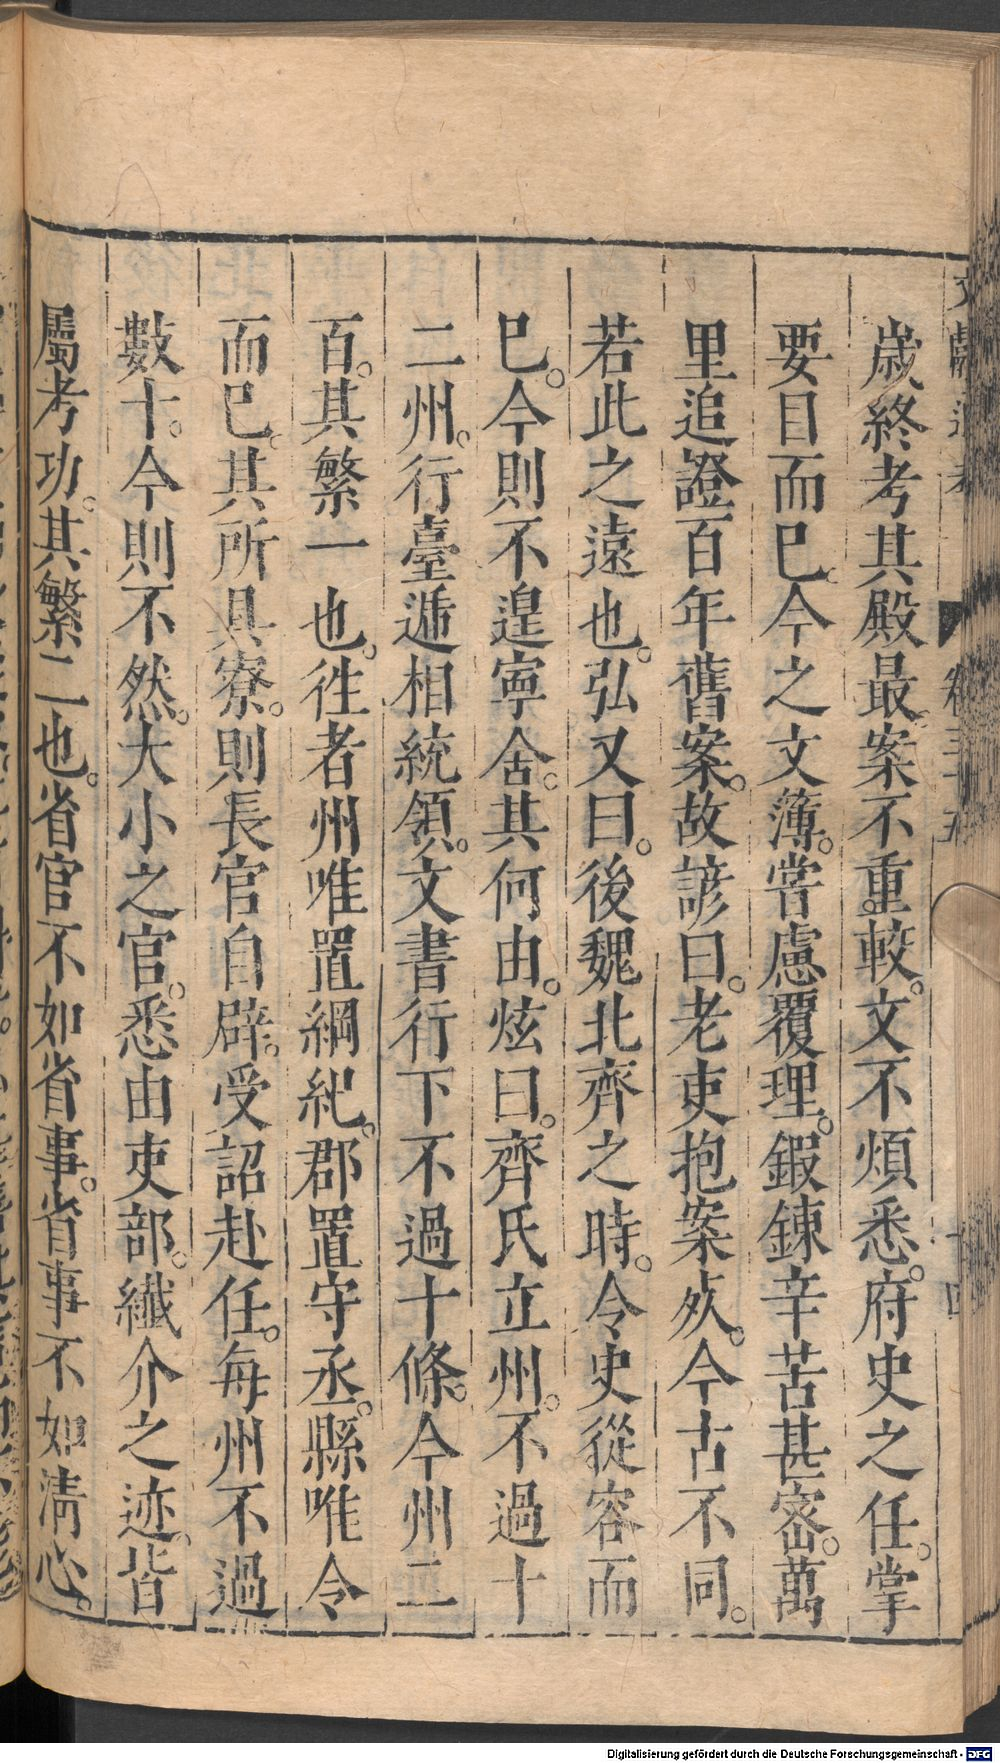 歲終考其殿最。案不重較。文不煩悉。府史之任。掌
要目而已。今之文簿。嘗慮覆理。鍜鍊辛苦甚宻。萬
里追證百年舊案。故諺曰。老吏抱案死。今古不同。
若此之遠也。弘又曰。後魏北齊之時。令史從容而
已。今則不遑寧舍。其何由。炫曰。齊氏立州。不過十
二州。行臺遞相統領。文書行下不過十條。今州二
百。其繁一也。徃者州唯置綱紀。郡置守丞。縣唯令
而已。其所具寮。則長官自辟。受詔赴任。每州不過
數十。今則不然。大小之官。悉由吏部。纖介之迹。皆
屬考功。其繁二也。省官不如省事。省事不如清心。
Digitalisierung gefördert durch die Deutsche Forschungsgemeinschaft - DFG